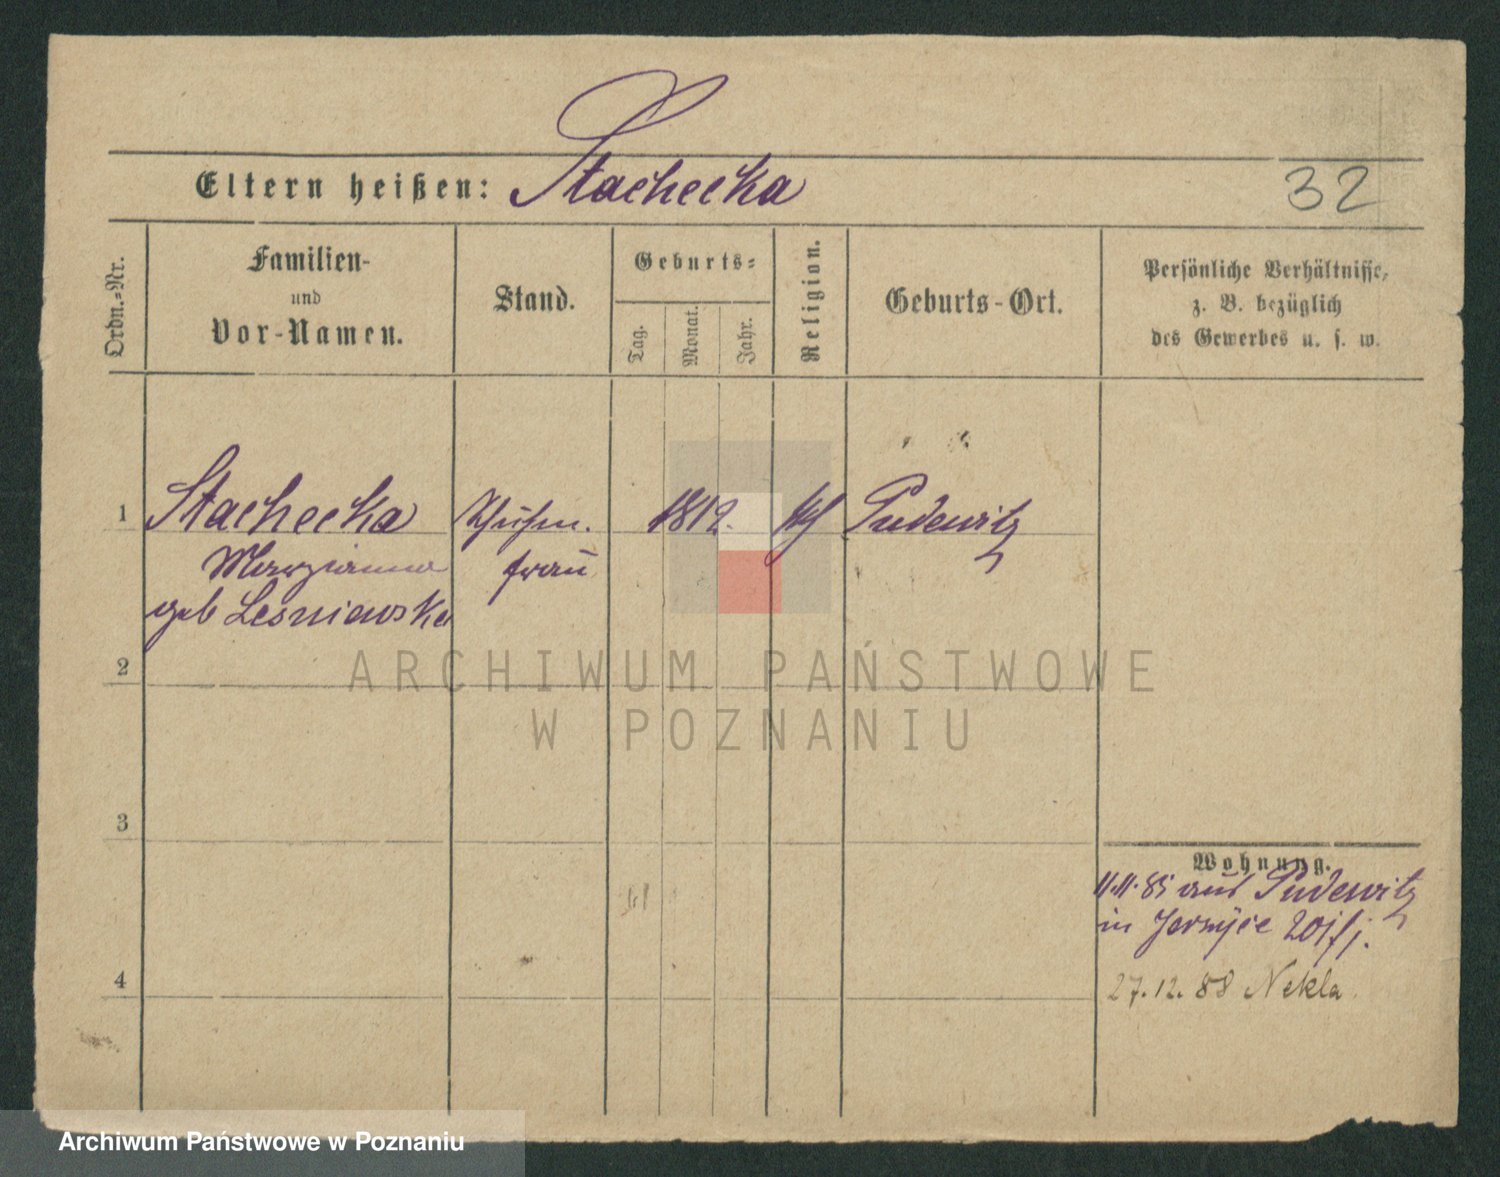 Eltern heißen: Stachecka
32
Ordn.-Nr.
Familien-
und
Vor-Namen.
Stand.
Geburts-
Tag.
Monat.
Jahr.
Religion.
Geburts-Ort.
Persönliche Verhältnisse,
z. B. bezüglich
des Gewerbes u. s. w.
1 Stachecka 1812. kth Pudewitz
Maryianna frau
geb Lesniewska
2
3
4
Wohnung.
11.11.85 aus Pudewitz
in Jersyce
27.12.88 Nekla
ARCHIWUM PAŃSTWOWE
W POZNANIU
Archiwum Państwowe w Poznaniu